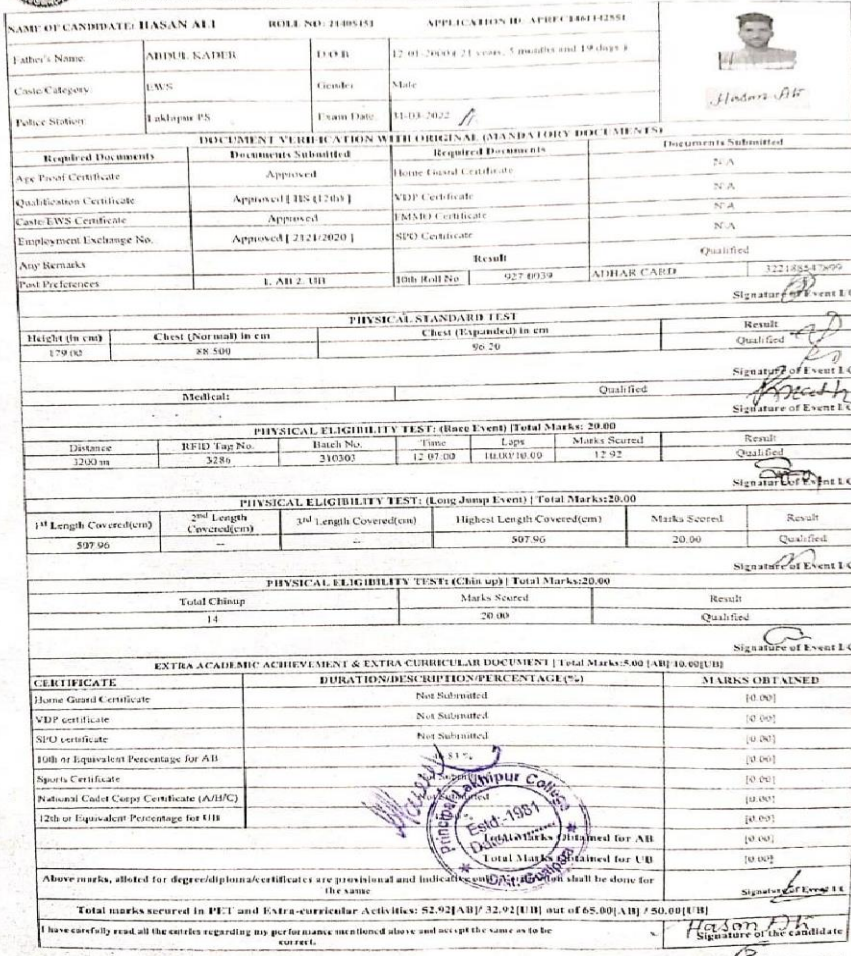 NAME OF CANDIDATE: HASAN ALI ROLL NO: 21405151 APPLICATION ID: APREC1461142551
Father's Name: ABDUL KADER D.O.B 12-01-2000 ( 21 years, 5 months and 19 days )
Caste/Category: EWS Gender Male
Police Station: Lakhipur PS Exam Date: 31-03-2022
Hasan Ali
DOCUMENT VERIFICATION WITH ORIGINAL (MANDATORY DOCUMENTS)
Required Documents Documents Submitted Required Documents Documents Submitted
Age Proof Certificate Approved Home Guard Certificate N/A
Qualification Certificate Approved [ HS (12th) ] VDP Certificate N/A
Caste/EWS Certificate Approved EMMO Certificate N/A
Employment Exchange No. Approved [ 2121/2020 ] SPO Certificate N/A
Any Remarks Result Qualified
Post Preferences 1. AB 2. UB 10th Roll No 927-0039 ADHAR CARD
Signature of Event I/C
PHYSICAL STANDARD TEST
Height (in cm) Chest (Normal) in cm Chest (Expanded) in cm Result
179.00 88.500 96.20 Qualified
Signature of Event I/C
Medical: Qualified
Signature of Event I/C
PHYSICAL ELIGIBILITY TEST: (Race Event) |Total Marks: 20.00
Distance RFID Tag No. Batch No. Time Laps Marks Scored Result
3200 m 3286 310303 12:07:00 10.00/10.00 12.92 Qualified
Signature of Event I/C
PHYSICAL ELIGIBILITY TEST: (Long Jump Event) | Total Marks:20.00
1st Length Covered(cm) 2nd Length Covered(cm) 3rd Length Covered(cm) Highest Length Covered(cm) Marks Scored Result
507.96 -- -- 507.96 20.00 Qualified
Signature of Event I/C
PHYSICAL ELIGIBILITY TEST: (Chin up) | Total Marks:20.00
Total Chinup Marks Scored Result
14 20.00 Qualified
Signature of Event I/C
EXTRA ACADEMIC ACHIEVEMENT & EXTRA CURRICULAR DOCUMENT | Total Marks:5.00 [AB] 10.00[UB]
CERTIFICATE DURATION/DESCRIPTION/PERCENTAGE(%) MARKS OBTAINED
Home Guard Certificate Not Submitted [0.00]
VDP certificate Not Submitted [0.00]
SPO certificate Not Submitted [0.00]
10th or Equivalent Percentage for AB [0.00]
Sports Certificate Not Submitted [0.00]
National Cadet Corps Certificate (A/B/C) Not Submitted [0.00]
12th or Equivalent Percentage for UB [0.00]
Total Marks Obtained for AB [0.00]
Total Marks Obtained for UB [0.00]
Principal Lakhipur College
Estd:-1981
Date
Dist: Goalpara
Above marks, alloted for degree/diploma/certificates are provisional and indicative only shall be done for
the same
Signature of Event I/C
Total marks secured in PET and Extra-curricular Activities: 52.92[AB]/ 32.92[UB] out of 65.00[AB] / 50.00[UB]
I have carefully read all the entries regarding my performance mentioned above and accept the same as to be
correct.
Hasan Ali
Signature of the candidate